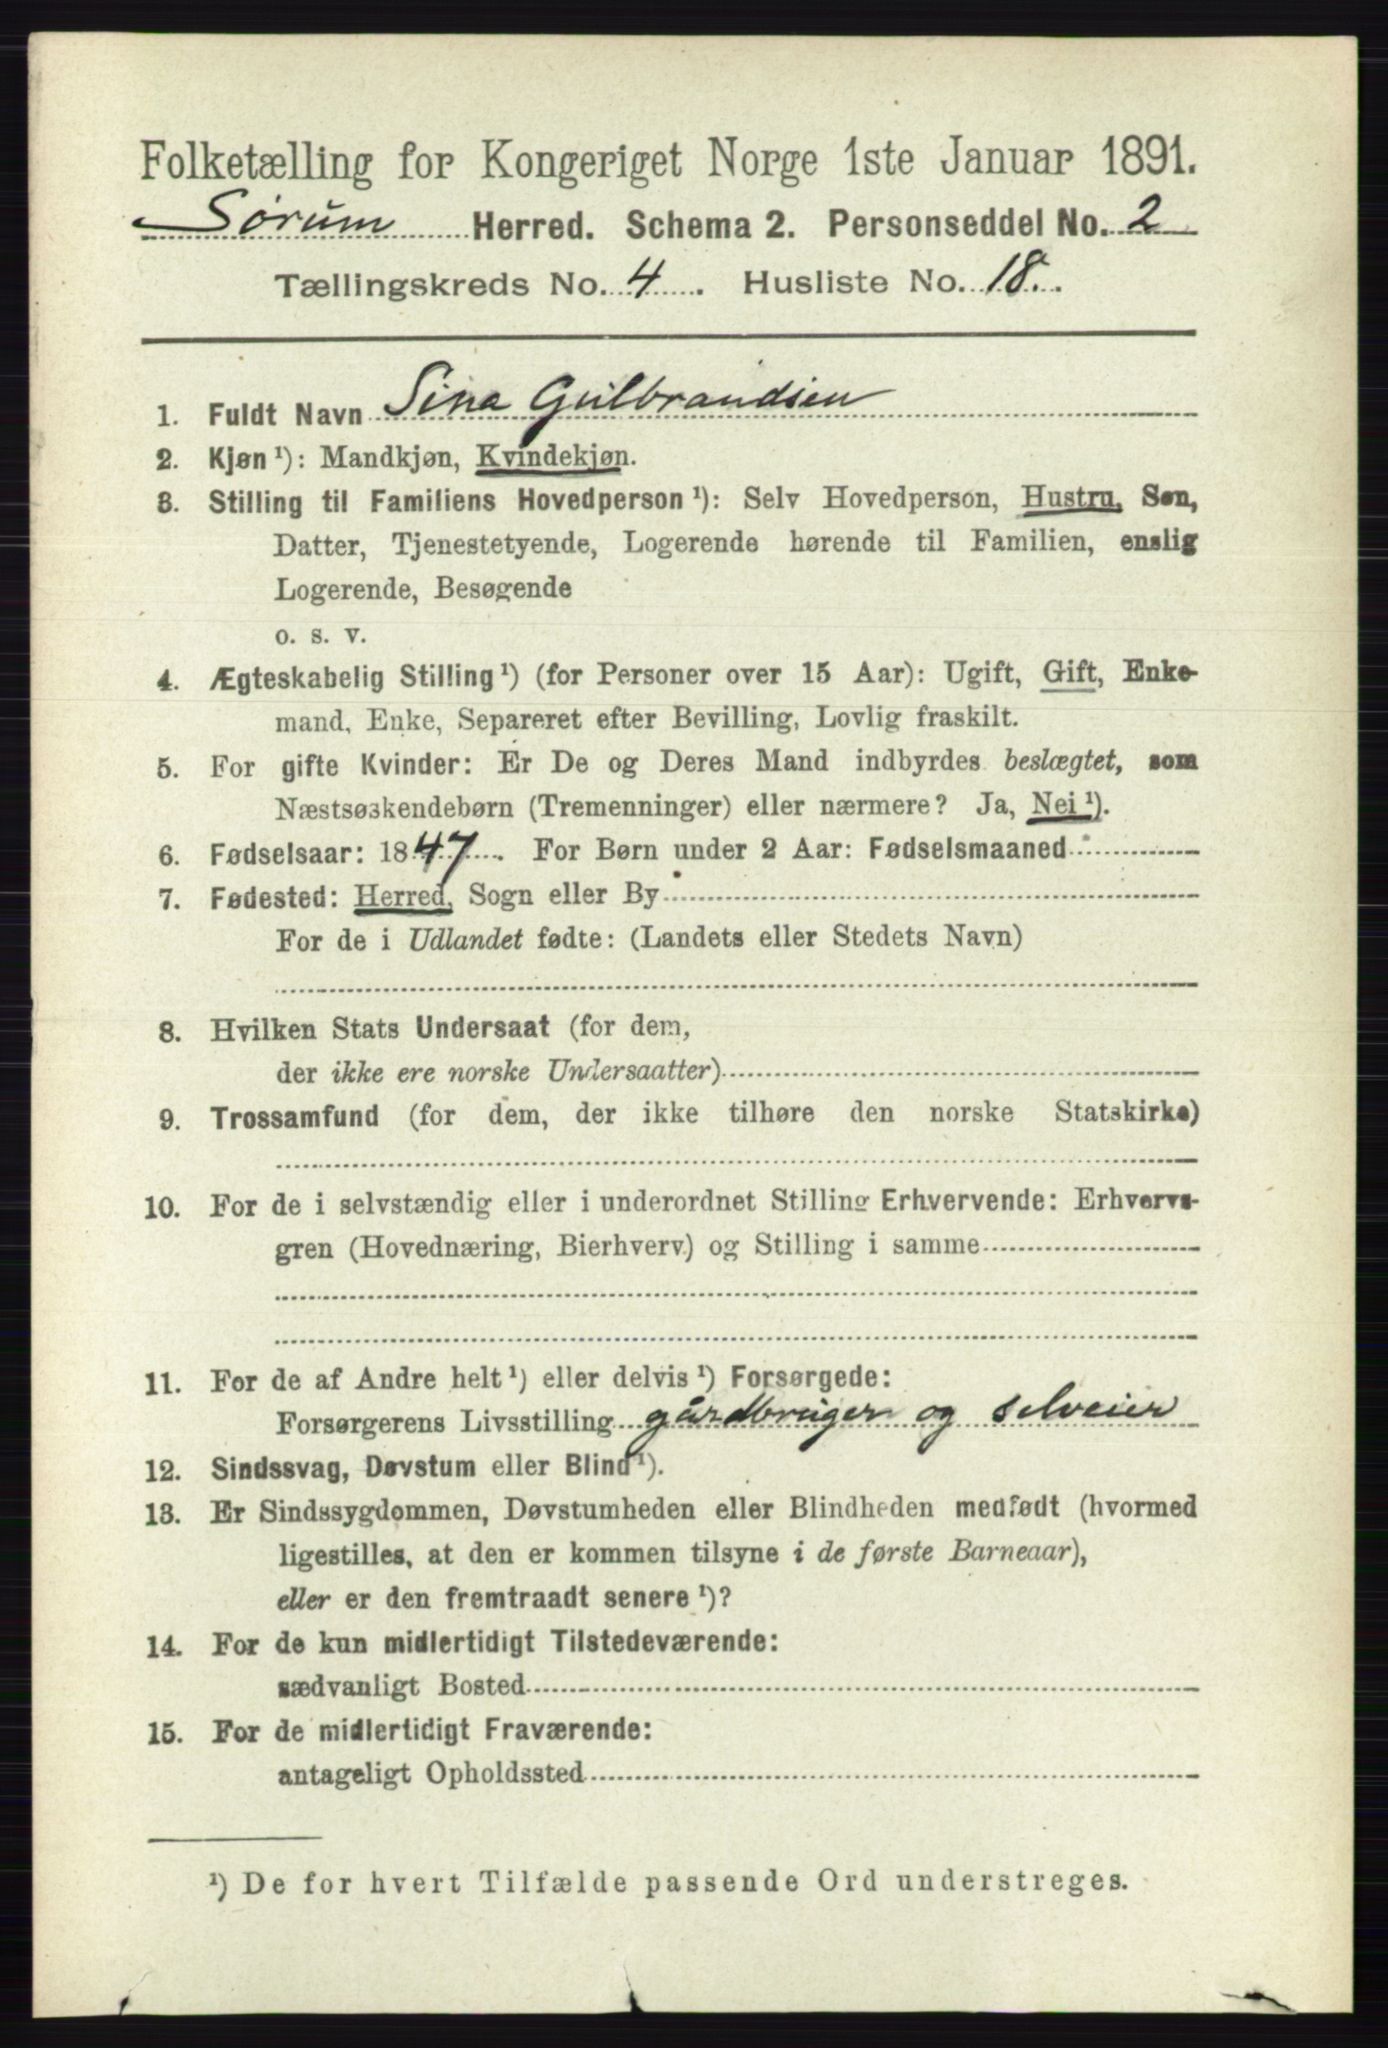 Folketælling for Kongeriget Norge 1ste Januar 1891.
Sørum Herred. Schema 2. Personseddel No. 2
Tællingskreds No. 4. Husliste No. 18.
1. Fuldt Navn Sina Gulbrandsen
2. Kjøn ¹): Mandkjøn, Kvindekjøn.
3. Stilling til Familiens Hovedperson ¹): Selv Hovedperson, Hustru, Søn,
Datter, Tjenestetyende, Logerende hørende til Familien, enslig
Logerende, Besøgende
o. s. v.
4. Ægteskabelig Stilling ¹) (for Personer over 15 Aar): Ugift, Gift, Enke-
mand, Enke, Separeret efter Bevilling, Lovlig fraskilt.
5. For gifte Kvinder: Er De og Deres Mand indbyrdes beslægtet, som
Næstsøskendebørn (Tremenninger) eller nærmere? Ja, Nei ¹).
6. Fødselsaar: 1847. For Børn under 2 Aar: Fødselsmaaned
7. Fødested: Herred, Sogn eller By
For de i Udlandet fødte: (Landets eller Stedets Navn)
8. Hvilken Stats Undersaat (for dem,
der ikke ere norske Undersaatter)
9. Trossamfund (for dem, der ikke tilhøre den norske Statskirke)
10. For de i selvstændig eller i underordnet Stilling Erhvervende: Erhvervs-
gren (Hovednæring, Bierhverv) og Stilling i samme
11. For de af Andre helt ¹) eller delvis ¹) Forsørgede:
Forsørgerens Livsstilling gårdbruger og selveier
12. Sindssvag, Døvstum eller Blind ¹).
13. Er Sindssygdommen, Døvstumheden eller Blindheden medfødt (hvormed
ligestilles, at den er kommen tilsyne i de første Barneaar),
eller er den fremtraadt senere ¹)?
14. For de kun midlertidigt Tilstedeværende:
sædvanligt Bosted
15. For de midlertidigt Fraværende:
antageligt Opholdssted
¹) De for hvert Tilfælde passende Ord understreges.